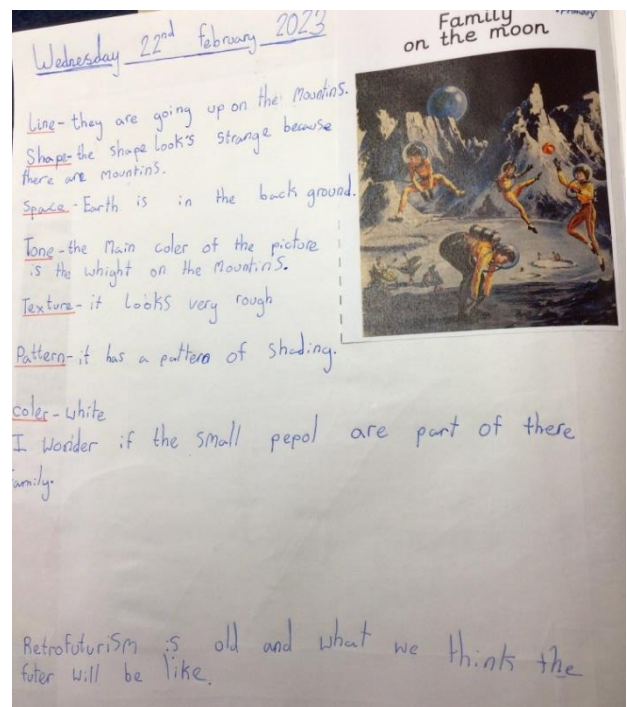 Wednesday 22nd february 2023
Family
on the moon
Line - they are going up on the Mountins.
Shape - the shape look's strange because
there are Mountins.
Space - Earth is in the back ground.
Tone - the Main coler of the picture
is the whight on the Mountins.
Texture - it looks very rough
Pattern - it has a pattern of shading.
coler - white
I wonder if the small pepol are part of there
family.
Retrofuturism is old and what we think the
futer will be like.